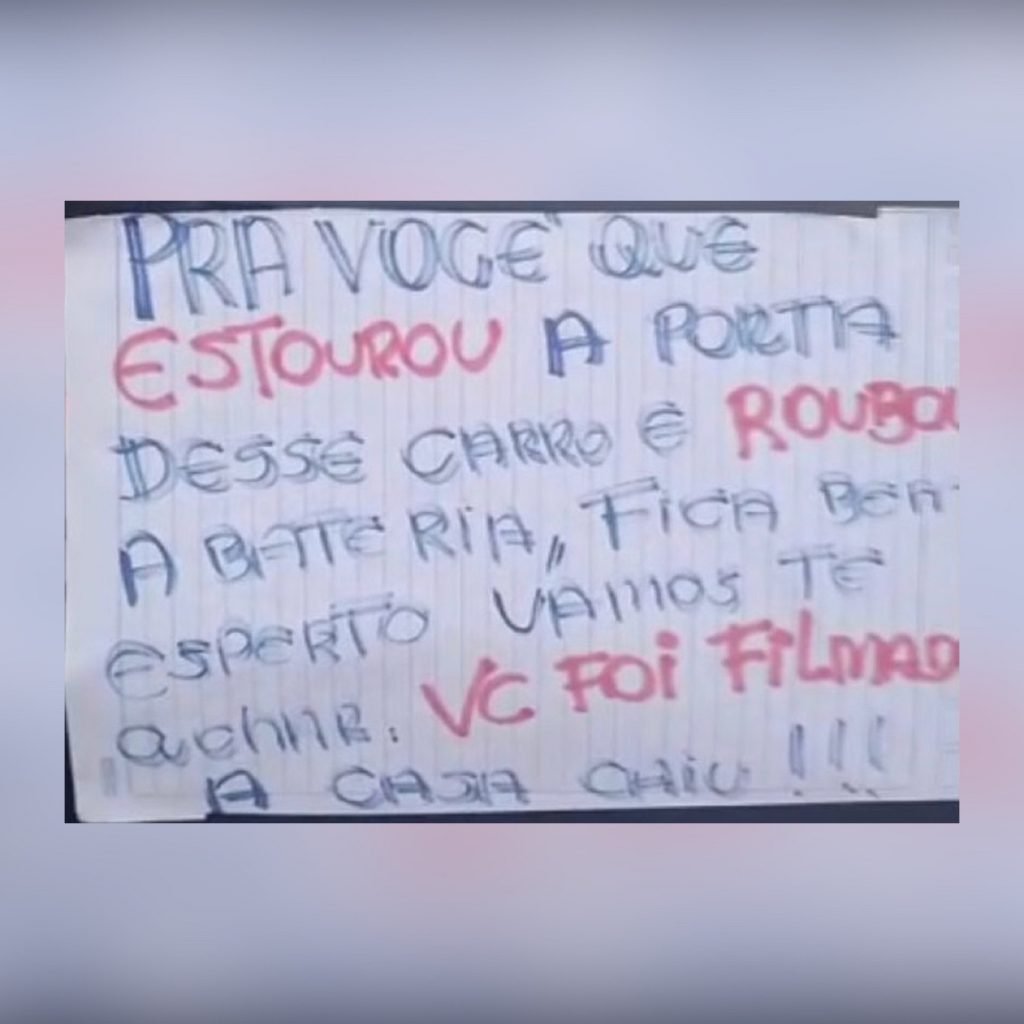 PRA VOCE QUE
ESTOUROU A PORTA
DESSE CARRO E ROUBOU
A BATERIA, FICA BEM
ESPERTO VAMOS TE
achAR. VC FOi FiLMADO
A CASA CAIU !!!